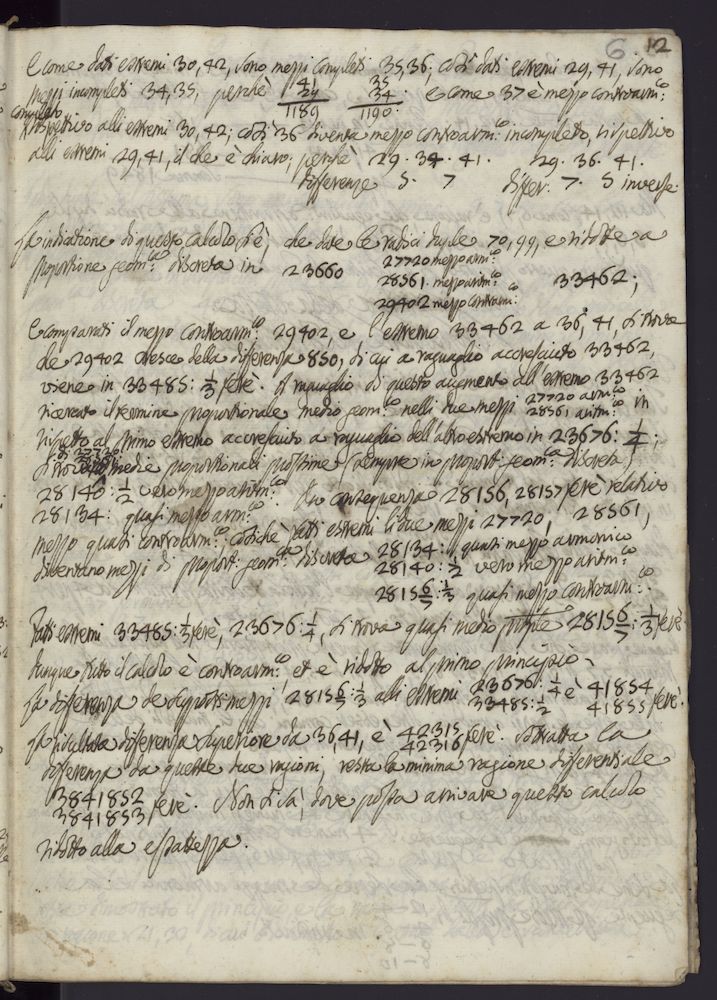 6 12
E come dati estremi 30, 42, sono mezzi completi 35, 36; così dati estremi 29, 41, sono
mezzi incompleti 34, 35, perchè 41 35
29 34
1189 1190. E come 37 è mezzo contrarm:co
completo
rispettivo alli estremi 30, 42; così 36 diventa mezzo contrarm:co incompleto, rispettivo
alli estremi 29, 41, il che è chiaro; perchè 29. 34. 41. 29. 36. 41.
differenze 5. 7 differ. 7. 5 inverse.
La indicazione di questo calcolo si è, che date le radici duple 70, 99, e ridotte a
proporzione geom:ca discreta in 23660 27720 mezzo arm:co
28561. mezzo aritm:co 33462;
29402 mezzo contrarm:co
E comparati il mezzo contrarm:co 29402, e l'estremo 33462 a 36, 41, si trova
che 29402 cresce della differenza 850, di cui a ragguaglio accresciuto 33462,
viene in 33485: 1/3 ferè. A ragguaglio di questo augmento all'estremo 33462
ricercato il termine proporzionale medio geom:co nelli due mezzi 27720 arm:co
28561 aritm:co in
rispetto al primo estremo accresciuto a ragguaglio dell'altro estremo in 23676: 1/4;
di 27720.
28561
si trovano medie proporzionali prossime (sempre in proport: geom:ca discreta)
28140: 1/2 vero mezzo aritm:co In conseguenza 28156, 28157 ferè relativo
28134: quasi mezzo arm:co
mezzo quasi contrarm:co; cosichè fatti estremi li due mezzi 27720, 28561,
diventano mezzi di proport: geom:ca discreta 28134: quasi mezzo armonico
28140: 1/2 vero mezzo aritm:co
28156/7: 1/3 quasi mezzo contrarm:co
Fatti estremi 33485: 1/3 ferè, 23676: 1/4, si trova quasi medio 28156/7: 1/3 ferè.
Dunque tutto il calcolo è contrarm:co et è ridotto al primo principio.
La differenza de mezzi 28156/7: 1/3 alli estremi 23676: 1/4 è 41854
33485: 1/2 41855 ferè.
La differenza superiore da 36, 41, è 42315
42316 ferè. Sottratta la
differenza da queste due ragioni, resta la minima ragione differenziale
3841852
3841853 ferè. Non si sà, dove possa arrivare questo calcolo
ridotto alla esattezza.